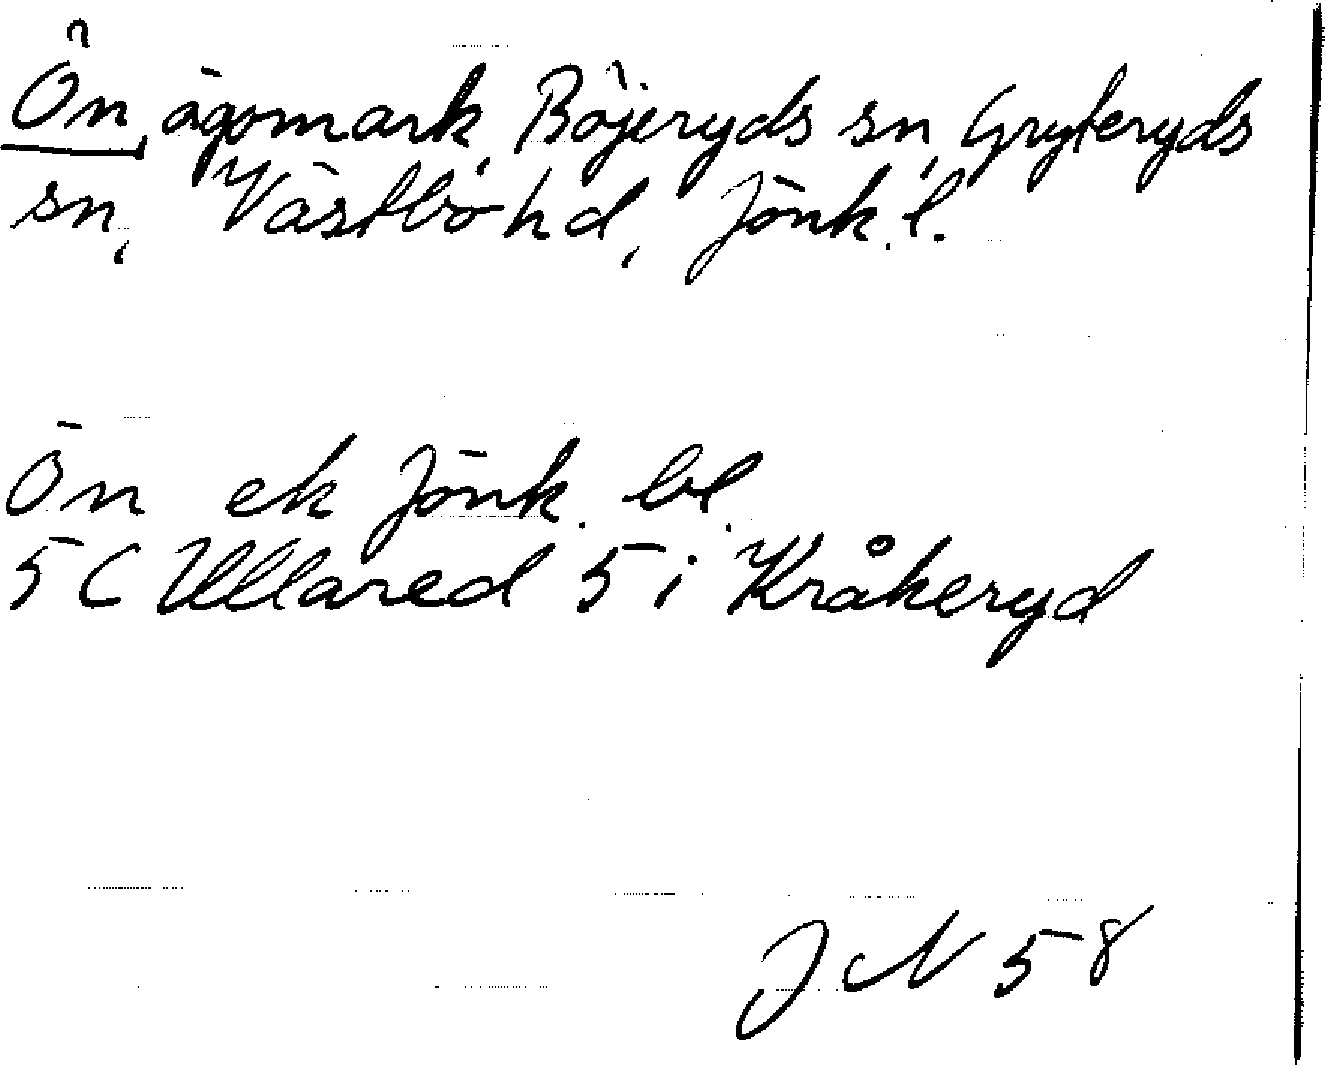 Ön, ägomark, Böjeryds sn, Gryteryds
sn, Västbo hd, Jönk. l.
Ön ek Jönk. bl.
5C Ullared 5 i Kråkeryd
JN 58